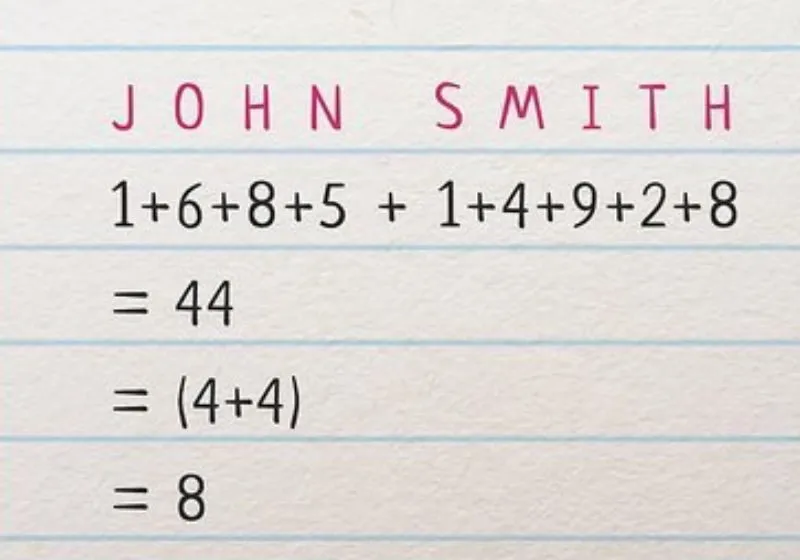 JOHN SMITH
1+6+8+5 + 1+4+9+2+8
= 44
= (4+4)
= 8